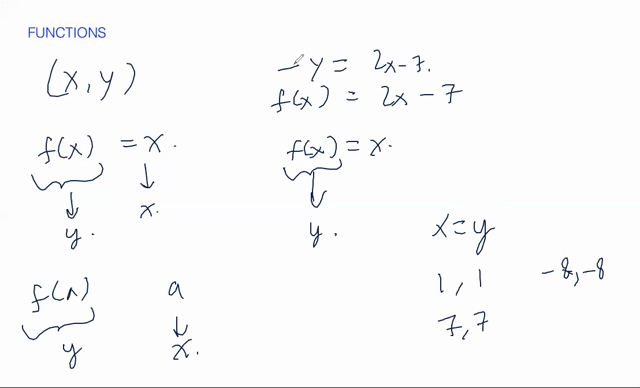 FUNCTIONS
(x, y)
y = 2x - 7.
f(x) = 2x - 7
f(x) = x.
y.
x.
f(x) = x.
y.
f(a)
y
a
x.
x = y
1, 1
7, 7
-8, -8